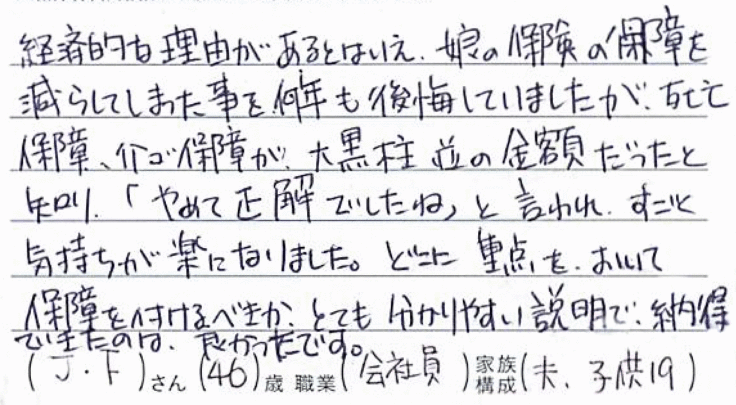 経済的な理由があるとはいえ、娘の保険の保障を
減らしてしまった事を何年も後悔していましたが、死亡
保障、介ゴ保障が、大黒柱並の金額だったと
知り、「やめて正解でしたね」と言われ、すごく
気持ちが楽になりました。どこに重点を、おいて
保障を付けるべきか、とても分かりやすい説明で、納得
できたのは、良かったです。
(J・F)さん(46)歳 職業(会社員)家族構成(夫、子供19)